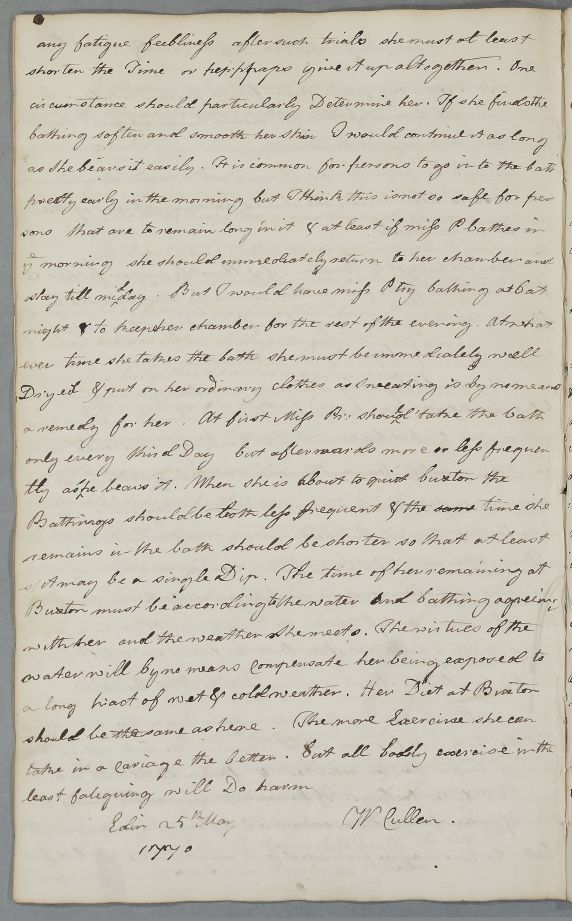 any fatigue feebliness after such trials she must at least
shorten the Time or perhaps give it up altogether. One
circumstance should particularly Determine her. If she finds the
bathing soften and smooth her skin I would continue it as long
as She bears it easily. It is common for persons to go in to the bath
pretty early in the morning but I think this is not so safe for per
sons that are to remain long in it & at least if miss P bathes in
ye morning she should immediately return to her chamber and
stay till midday. But I would have miss P try bathing at bat
night & to keep her chamber for the rest of the evening. At what
ever time she takes the bath she must be immediately well
Dryed & put on her ordinary clothes as sweating is by no means
a remedy for her. At first Miss Pr: should take the bath
only every third Day but afterwards more or less frequen
tly as she bears it. When she is about to quit buxton the
Bathings should be both less frequent & the same time she
remains in the bath should be shorter so that at least
it may be a single Dip. The time of her remaining at
Buxton must be according to the water and bathing agreeing
with her and the weather She meets. The virtues of the
water will by no means compensate her being exposed to
a long tract of wet & cold weather. Her Diet at Buxton
should be the same as here. The more Exercise she can
take in a cariage the better. But all bodily exercise in the
least fatiguing will Do harm
Edin 25th May W Cullen.
1770